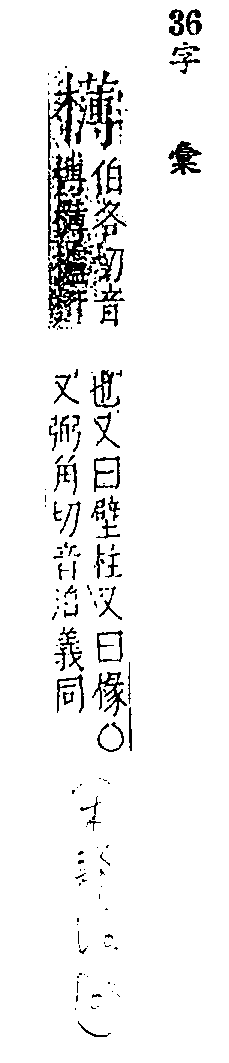 36
字彙
欂
伯各切音
博欂櫨枅
也又曰壁柱又曰像○
又弼角切音泊義同